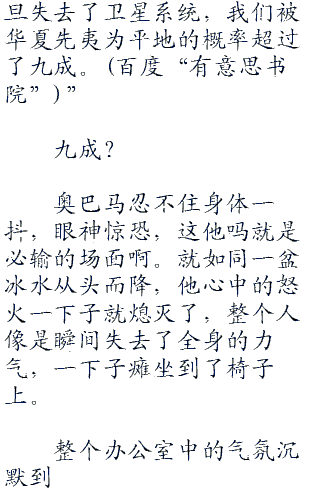 旦失去了卫星系统，我们被
华夏先夷为平地的概率超过
了九成。(百度“有意思书
院”)”
九成？
奥巴马忍不住身体一
抖，眼神惊恐，这他吗就是
必输的场面啊。就如同一盆
冰水从头而降，他心中的怒
火一下子就熄灭了，整个人
像是瞬间失去了全身的力
气，一下子瘫坐到了椅子
上。
整个办公室中的气氛沉
默到